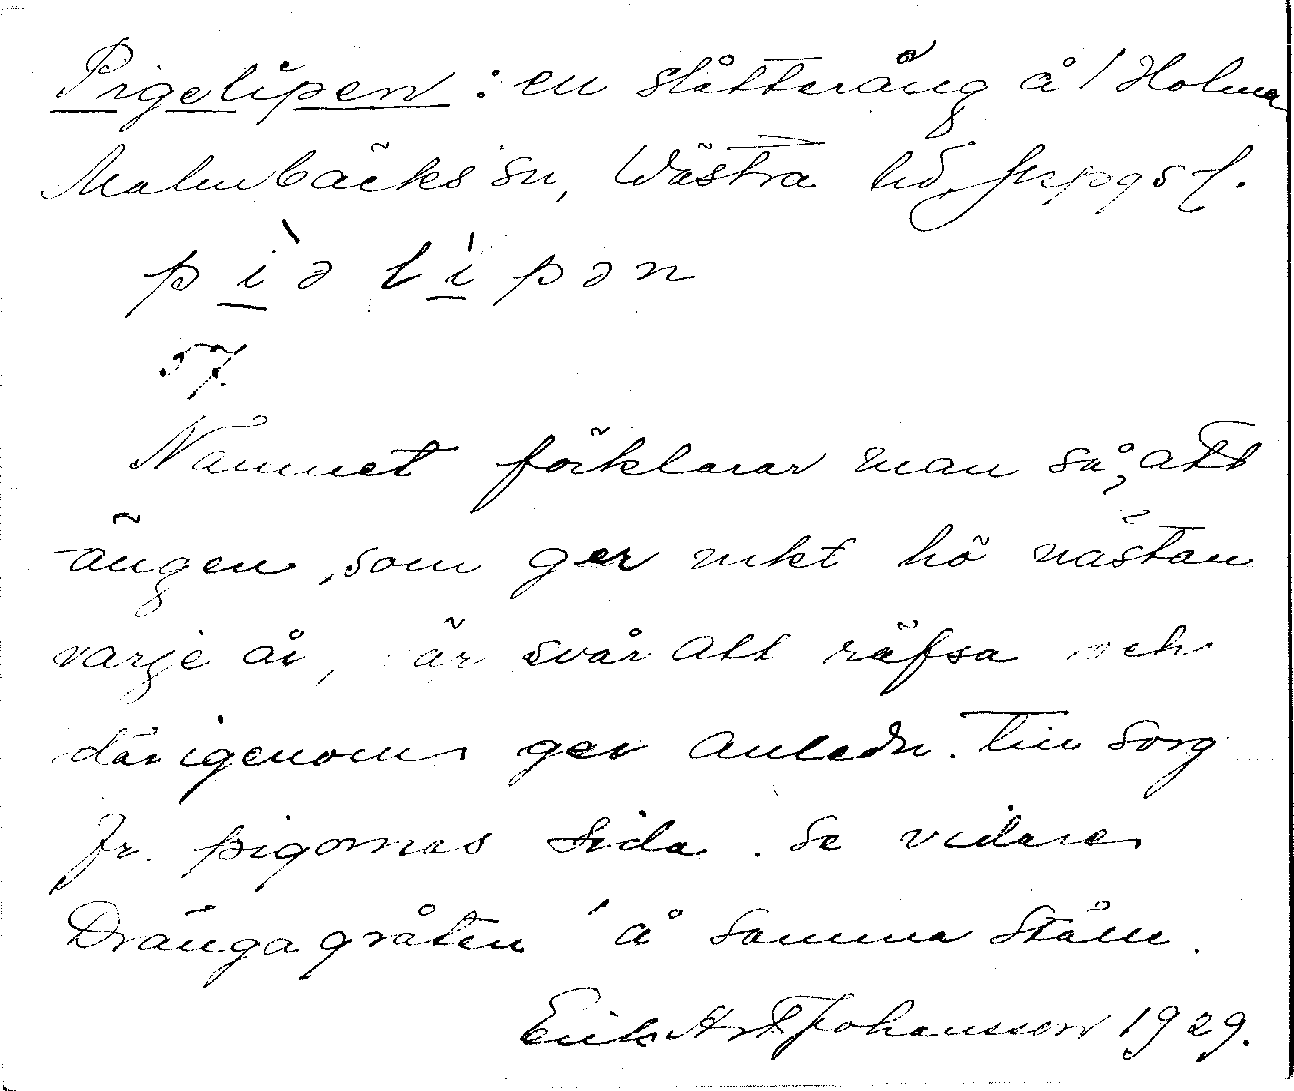 Pigelipen : en slåtteräng å / Holma
Malmbäcks sn, Västra hd,
p i ə l i p ə n
57.
Namnet förklarar man så, att
ängen, som ger rikt hö nästan
varje år, är svår att räfsa och
därigenom ger anledn. till sorg
fr. pigornas sida. Se vidare
Drängagråten å samma ställe.
Erik Art Johansson 1929.